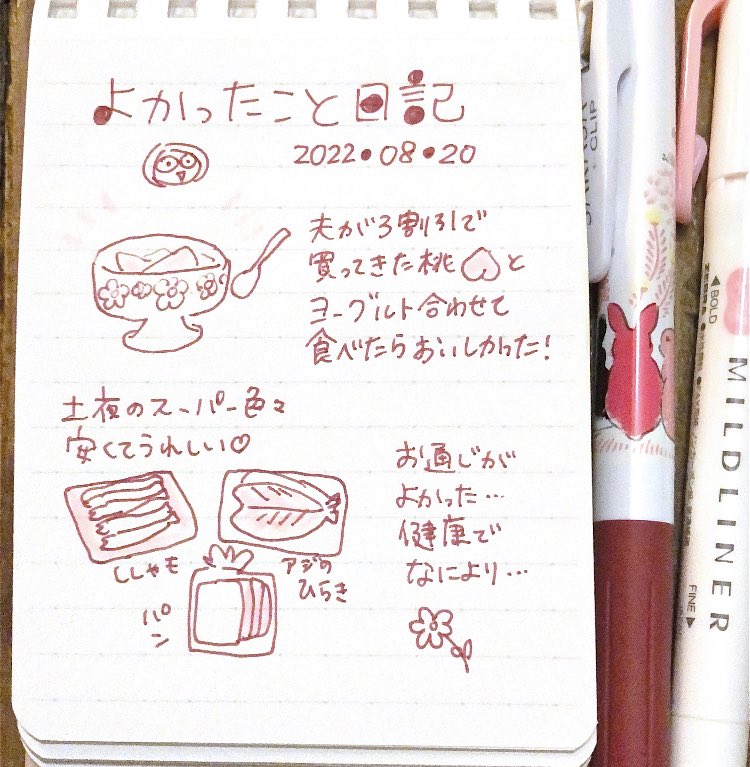 よかったこと日記
2022•08•20
夫が3割引で
買ってきた桃と
ヨーグルト合わせて
食べたらおいしかった!
土夜のスーパー色々
安くてうれしい♡
ししゃも
アジの
ひらき
パン
お通じが
よかった…
健康で
なにより…
CLIP
◀BOLD
ZEBRA
MILDLINER
FINE▶